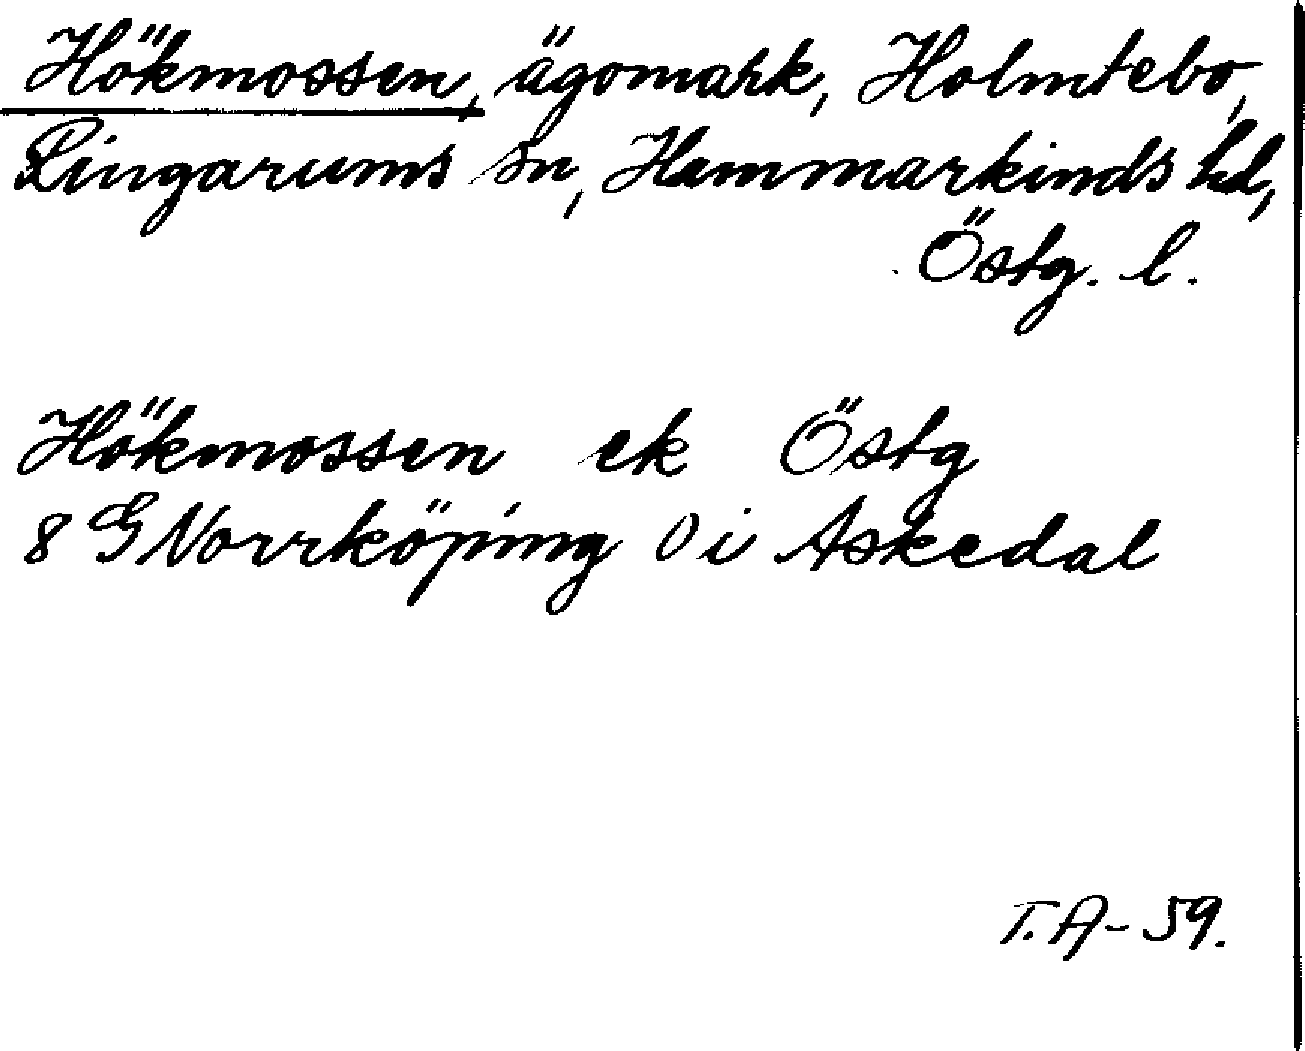 Hökmossen, ägomark, Holmtebo,
Ringarums sn, Hammarkinds hd,
Östg. l.
Hökmossen ek Östg
8 G Norrköping O i Askedal
T. A - 59.